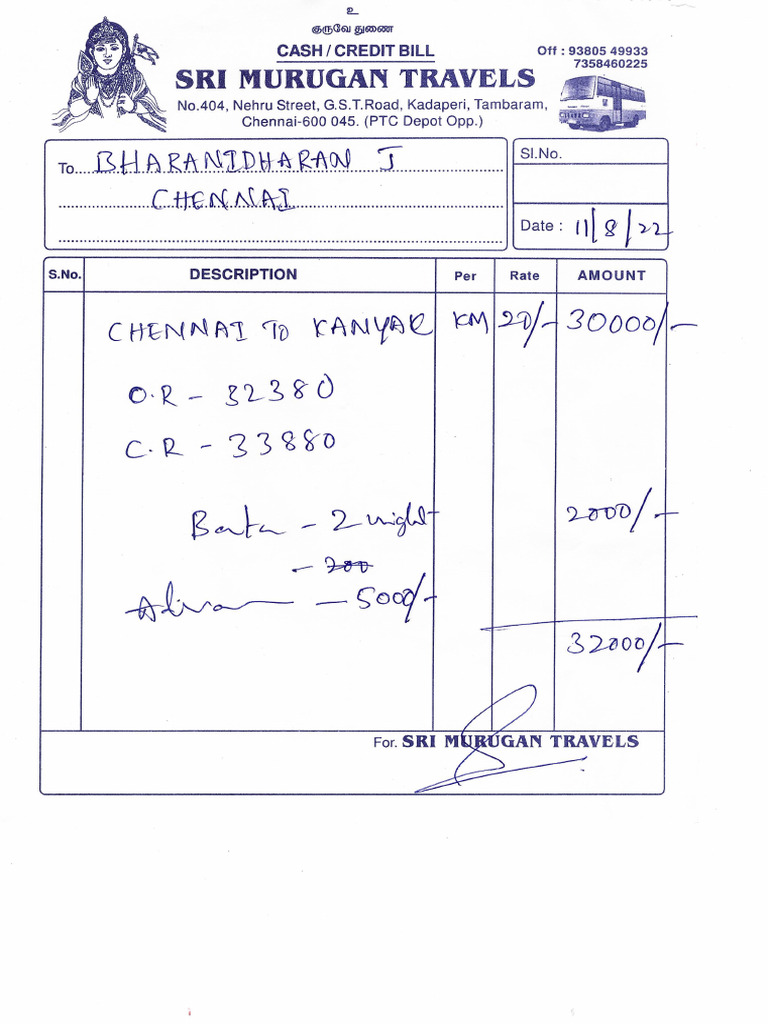 உ
குருவே துணை
CASH / CREDIT BILL
Off : 93805 49933
7358460225
SRI MURUGAN TRAVELS
No.404, Nehru Street, G.S.T.Road, Kadaperi, Tambaram,
Chennai-600 045. (PTC Depot Opp.)
To BHARANIDHARAN J
CHENNAI
Sl.No.
Date : 11/8/22
S.No. DESCRIPTION Per Rate AMOUNT
CHENNAI TO KANYAR KM 20/- 30000/-
O.R - 32380
C.R - 33880
Bata - 2 night 2000/-
- 200
- 5000/-
32000/-
For. SRI MURUGAN TRAVELS